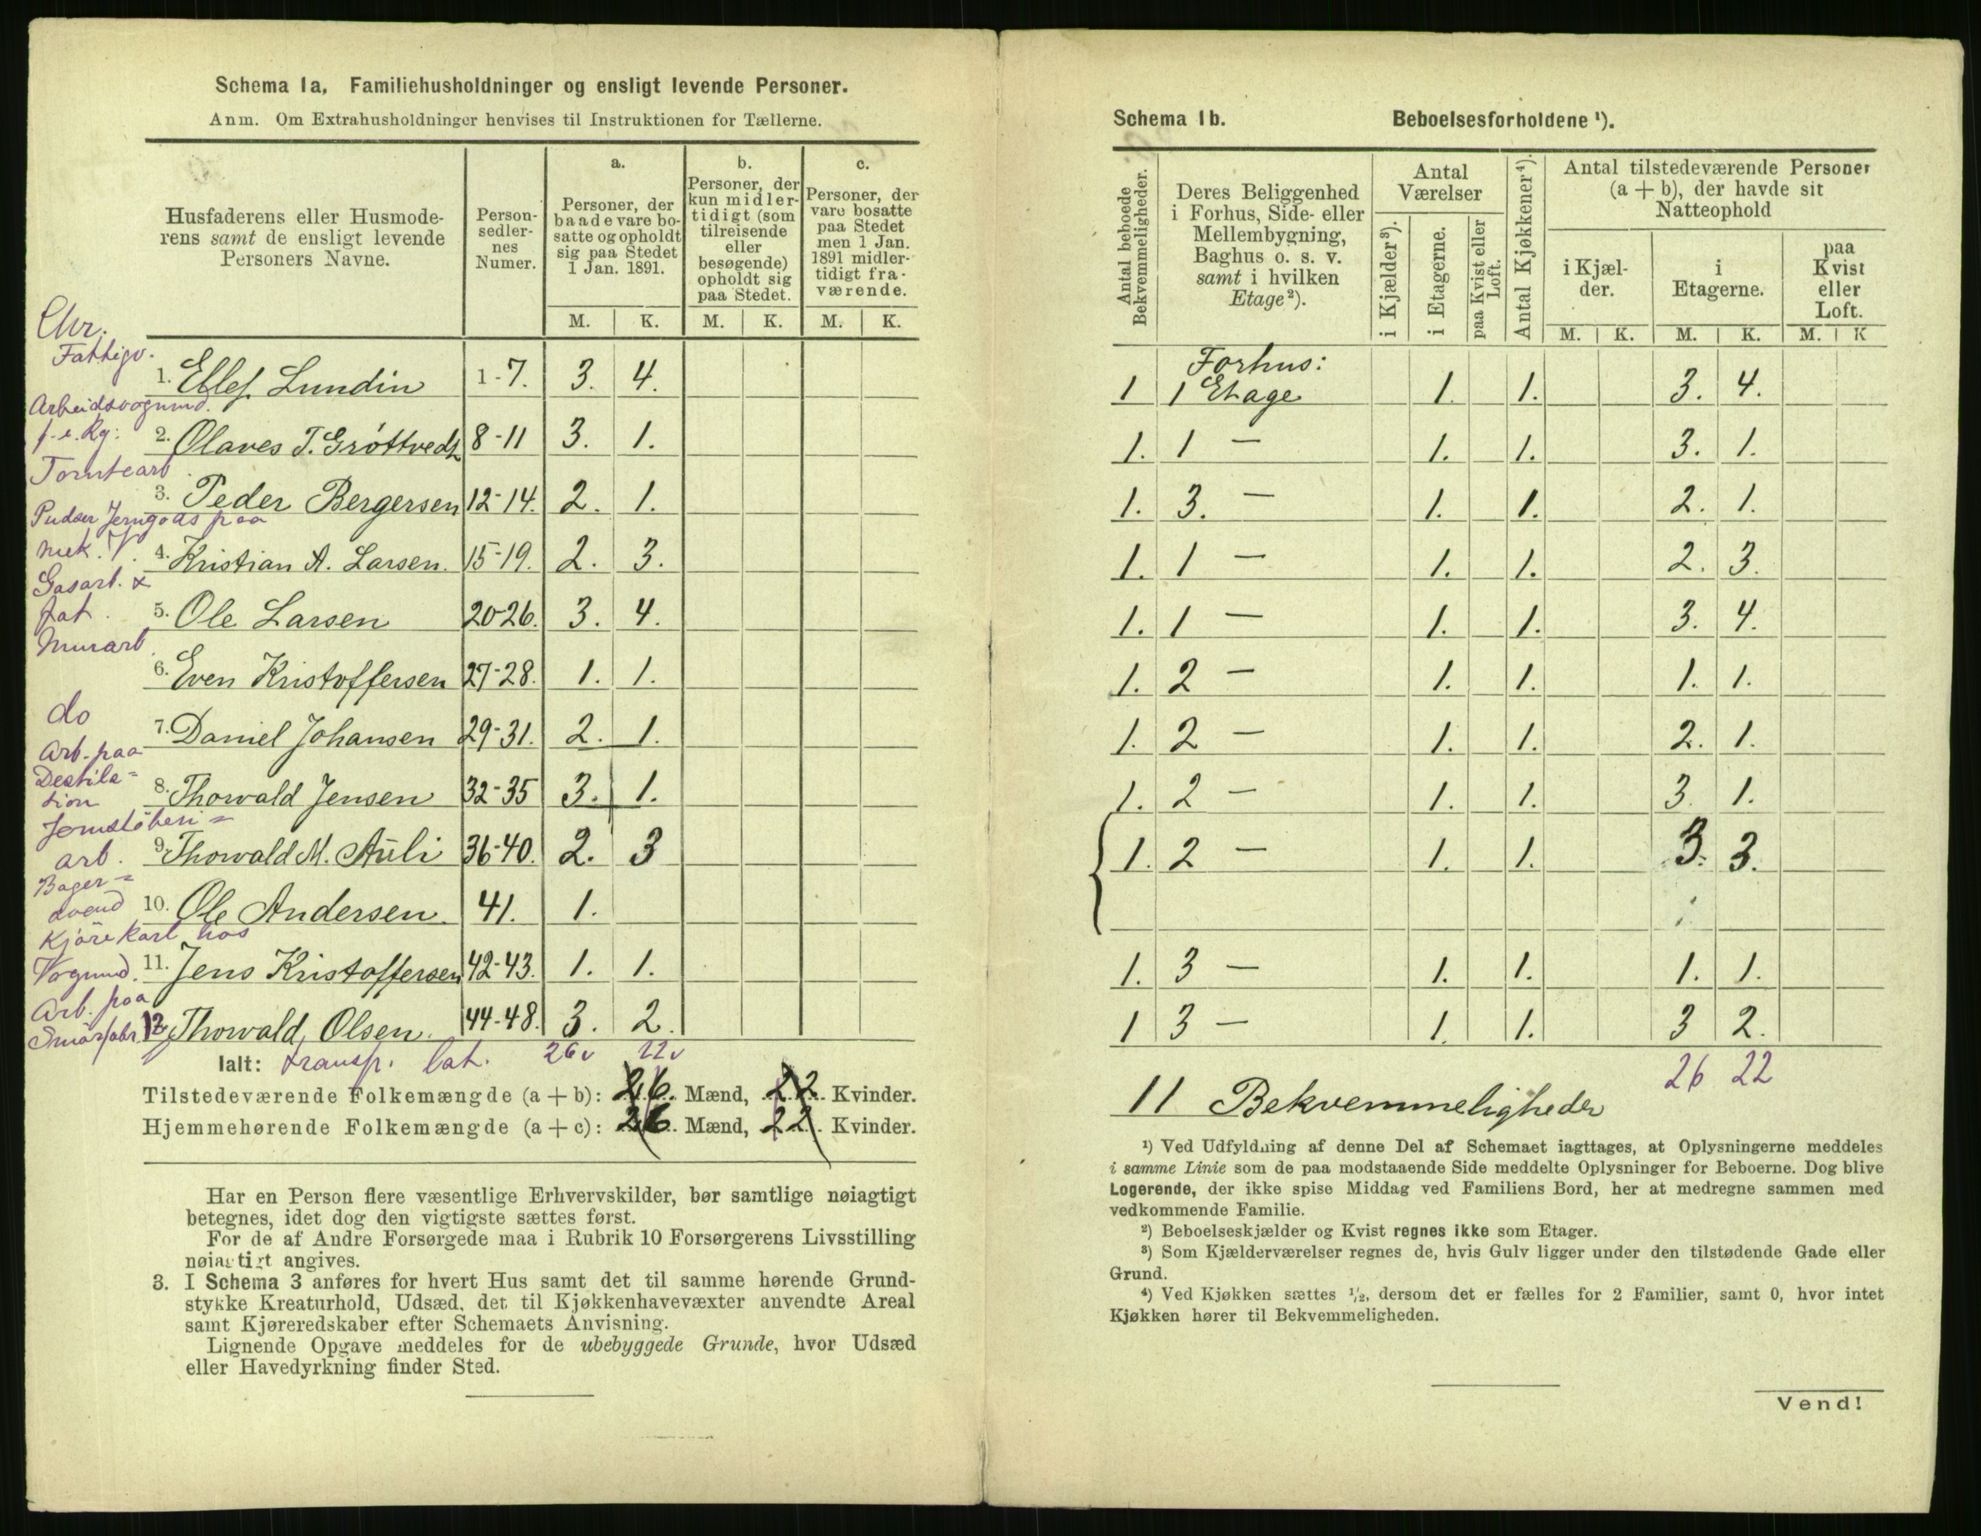 Schema 1a, Familiehusholdninger og ensligt levende Personer.
Anm. Om Extrahusholdninger henvises til Instruktionen for Tællerne.
Husfaderens eller Husmode-
rens samt de ensligt levende
Personers Navne.
Person-
sedler-
nes
Numer.
a.
Personer, der
baade vare bo-
satte og opholdt
sig paa Stedet
1 Jan. 1891.
b.
Personer, der
kun midler-
tidigt (som
tilreisende
eller
besøgende)
opholdt sig
paa Stedet.
c.
Personer, der
vare bosatte
paa Stedet
men 1 Jan.
1891 midler-
tidigt fra-
værende.
M. K. M. K. M. K.
Chr.
Fattigv.
1. Ellef Lundin 1-7. 3. 4.
Arbeidsvognmd.
f. e. Rg:
2. Olaves T. Grøttvedt 8-11 3. 1.
Tomtearb.
3. Peder Bergersen 12-14. 2. 1.
Pudser Jerngods paa
mek. V.
4. Kristian A. Larsen. 15-19. 2. 3.
Gasarb. x
fat.
5. Ole Larsen 20-26. 3. 4.
Murarb.
6. Even Kristoffersen 27-28. 1. 1.
do
7. Daniel Johansen 29-31. 2. 1.
Arb. paa
Destila=
tion
8. Thorvald Jensen 32-35 3. 1.
Jernstøberi=
arb.
9. Thorvald M. Auli 36-40. 2. 3
Bager=
svend
10. Ole Andersen 41. 1.
Kjørekarl hos
Vognmd.
11. Jens Kristoffersen 42-43. 1. 1.
Arb. paa
Smørfabr.
12. Thorvald Olsen. 44-48. 3. 2.
Ialt: transp. lat. 26 v 22 v
Tilstedeværende Folkemængde (a + b): 26. Mænd, 22 Kvinder.
Hjemmehørende Folkemængde (a + c): 26 Mænd, 22 Kvinder.
Har en Person flere væsentlige Erhvervskilder, bør samtlige nøiagtigt
betegnes, idet dog den vigtigste sættes først.
For de af Andre Forsørgede maa i Rubrik 10 Forsørgerens Livsstilling
nøiagtigt angives.
3. I Schema 3 anføres for hvert Hus samt det til samme hørende Grund-
stykke Kreaturhold, Udsæd, det til Kjøkkenhavevæxter anvendte Areal
samt Kjøreredskaber efter Schemaets Anvisning.
Lignende Opgave meddeles for de ubebyggede Grunde, hvor Udsæd
eller Havedyrkning finder Sted.
Schema 1b. Beboelsesforholdene ¹).
Antal beboede
Bekvemmeligheder.
Deres Beliggenhed
i Forhus, Side- eller
Mellembygning,
Baghus o. s. v.
samt i hvilken
Etage²).
Antal
Værelser
i Kjælder³).
i Etagerne.
paa Kvist eller
Loft.
Antal Kjøkkener⁴).
Antal tilstedeværende Personer
(a + b), der havde sit
Natteophold
i Kjæl-
der.
i
Etagerne.
paa
Kvist
eller
Loft.
M. K. M. K. M. K
Forhus:
1 1 Etage 1. 1. 3. 4.
1. 1 — 1. 1. 3. 1.
1. 3. — 1. 1. 2. 1.
1. 1 — 1. 1. 2. 3.
1. 1 — 1. 1. 3. 4.
1. 2 — 1. 1. 1. 1.
1. 2 — 1. 1. 2. 1.
1. 2 — 1. 1. 3. 1.
1. 2 — 1. 1. 3. 3.
1. 3 — 1. 1. 1. 1.
1 3 — 1. 1. 3 2.
26 22
11 Bekvemmeligheder
¹) Ved Udfyldning af denne Del af Schemaet iagttages, at Oplysningerne meddeles
i samme Linie som de paa modstaaende Side meddelte Oplysninger for Beboerne. Dog blive
Logerende, der ikke spise Middag ved Familiens Bord, her at medregne sammen med
vedkommende Familie.
²) Beboelseskjælder og Kvist regnes ikke som Etager.
³) Som Kjælderværelser regnes de, hvis Gulv ligger under den tilstødende Gade eller
Grund.
⁴) Ved Kjøkken sættes ½, dersom det er fælles for 2 Familier, samt 0, hvor intet
Kjøkken hører til Bekvemmeligheden.
Vend!